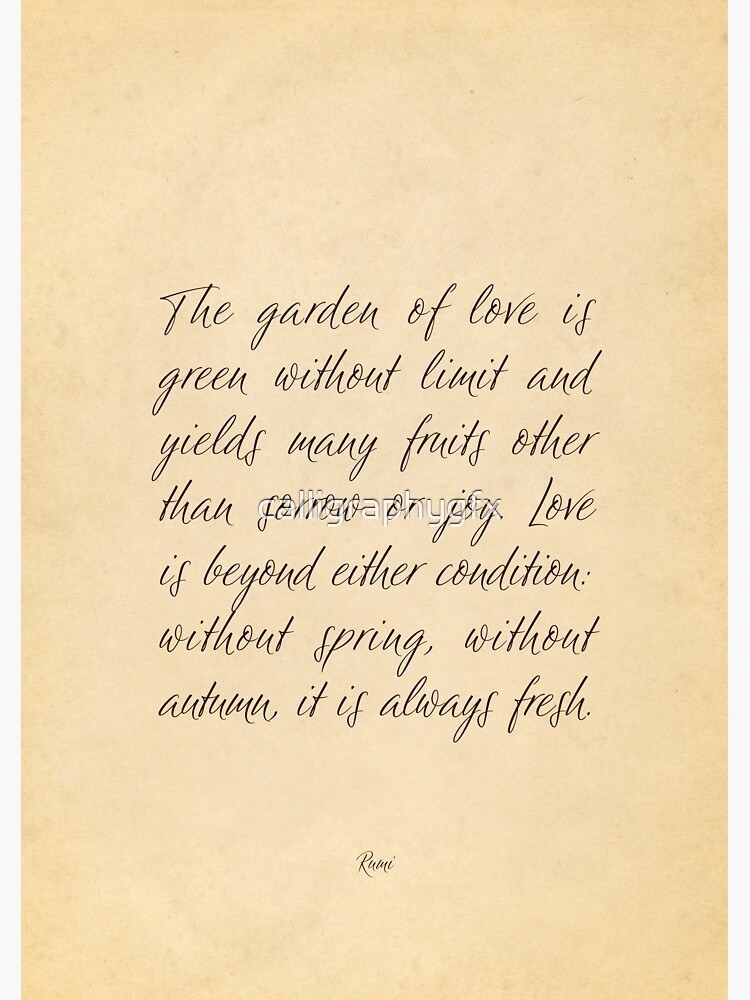 The garden of love is
green without limit and
yields many fruits other
than sorrow or joy. Love
calligraphygfx
is beyond either condition:
without spring, without
autumn, it is always fresh.
Rumi